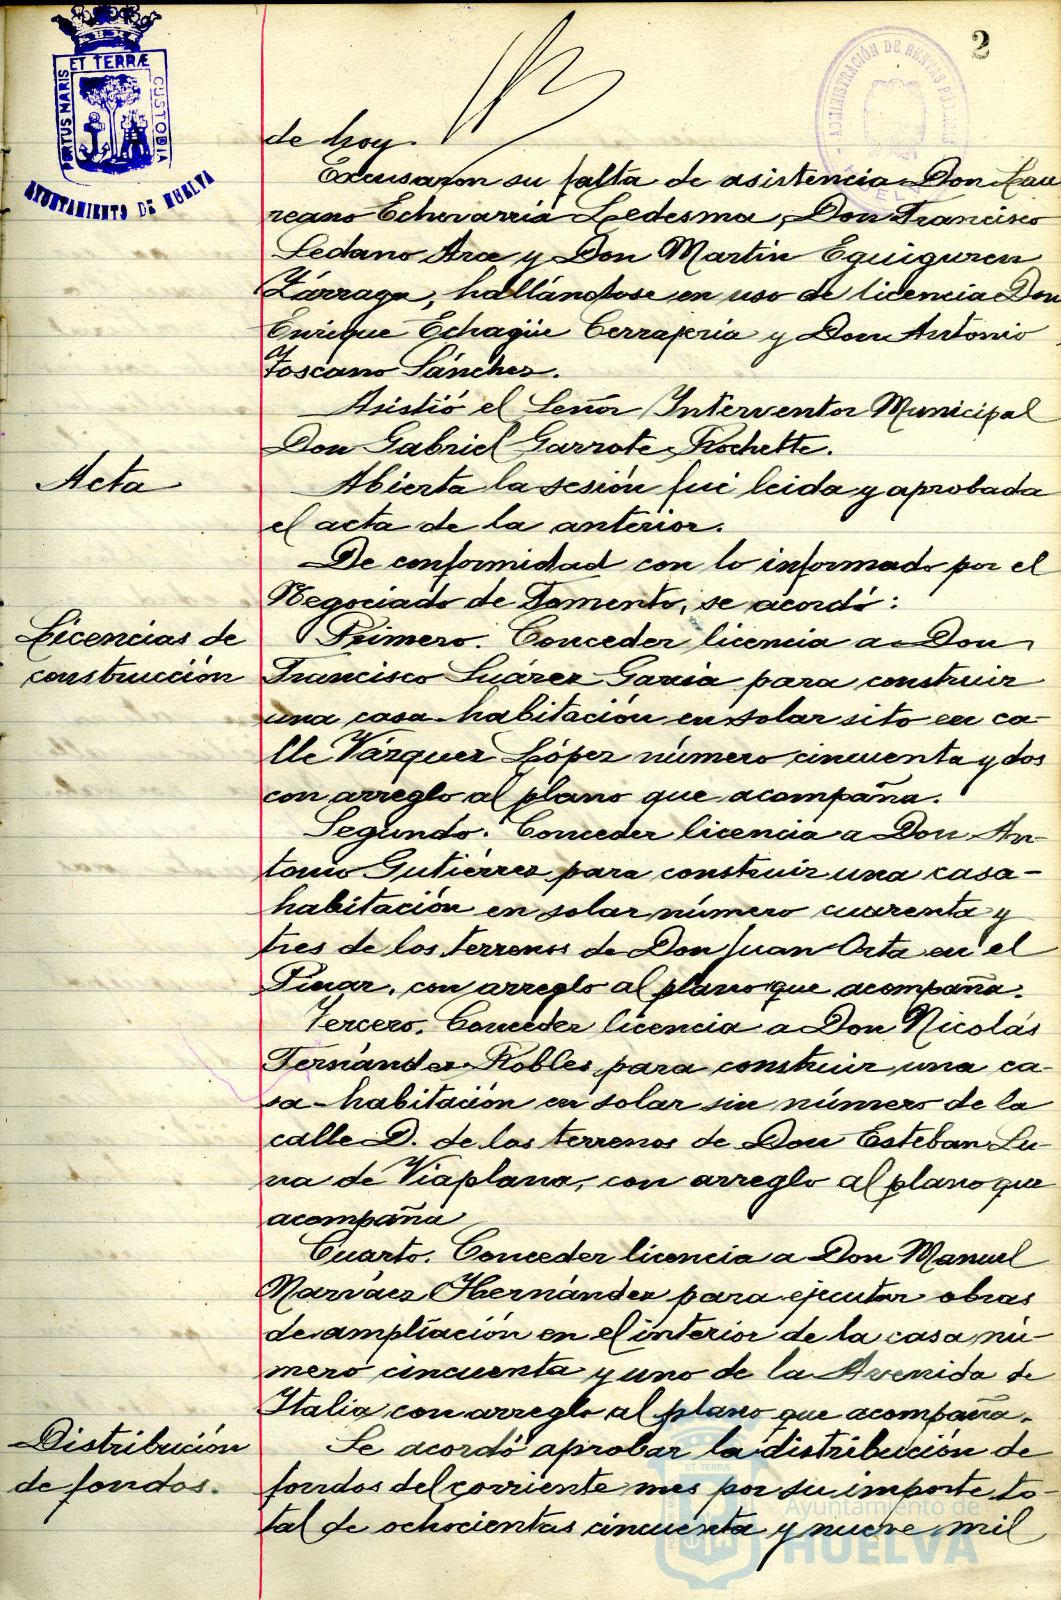 2
ET TERRÆ
PORTUS MARIS
CUSTODIA
AYUNTAMIENTO DE HUELVA
ADMINISTRACIÓN DE RENTAS PÚBLICAS
de hoy.
Excusaron su falta de asistencia Don Lau
reano Echevarria Ledesma, Don Francisco
Sedano Arce y Don Martin Eguiguren
Zárraga, hallándose en uso de licencia Don
Enrique Echagüe Cerrajeria y Don Antonio
Toscano Sánchez.
Asistió el Señor Interventor Municipal
Don Gabriel Garrote Rochette.
Acta
Abierta la sesión fué leida y aprobada
el acta de la anterior.
De conformidad con lo informado por el
Negociado de Fomento, se acordó:
Licencias de
construcción
Primero. Conceder licencia a Don
Francisco Suárez Garcia para construir
una casa-habitación en solar sito en ca-
lle Vázquez López número cincuenta y dos
con arreglo al plano que acompaña.
Segundo. Conceder licencia a Don An-
tonio Gutiérrez para construir una casa-
habitación en solar número cuarenta y
tres de los terrenos de Don Juan Orta en el
Pinar, con arreglo al plano que acompaña.
Tercero. Conceder licencia a Don Nicolás
Fernández Robles para construir una ca-
sa-habitación en solar sin número de la
calle D. de los terrenos de Don Esteban Lu-
na de Viaplana, con arreglo al plano que
acompaña
Cuarto. Conceder licencia a Don Manuel
Narváez Hernández para ejecutar obras
de ampliación en el interior de la casa nú-
mero cincuenta y uno de la Avenida de
Italia con arreglo al plano que acompaña.
Distribución
de fondos.
Se acordó aprobar la distribución de
fondos del corriente mes por su importe to-
tal de ochocientas cincuenta y nueve mil
Ayuntamiento de
HUELVA